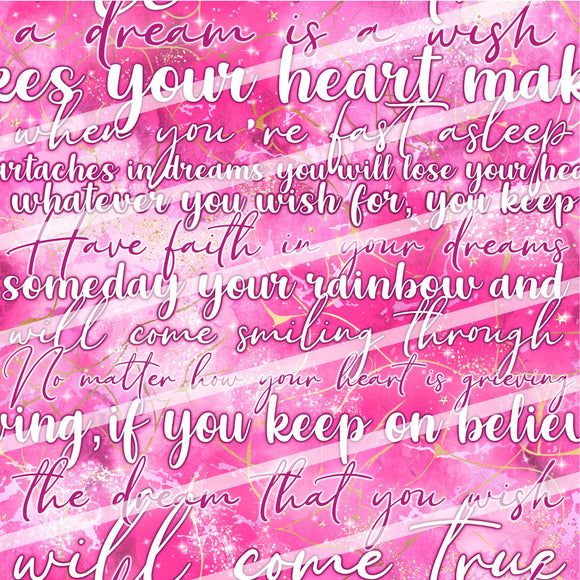 a dream is a wish
kes your heart mak
when you're fast asleep
artaches in dreams you will lose your hea
whatever you wish for, you keep
Have faith in your dreams
someday your rainbow and
will come smiling through
No matter how your heart is grieving
ving, if you keep on believ
the dream that you wish
will come True